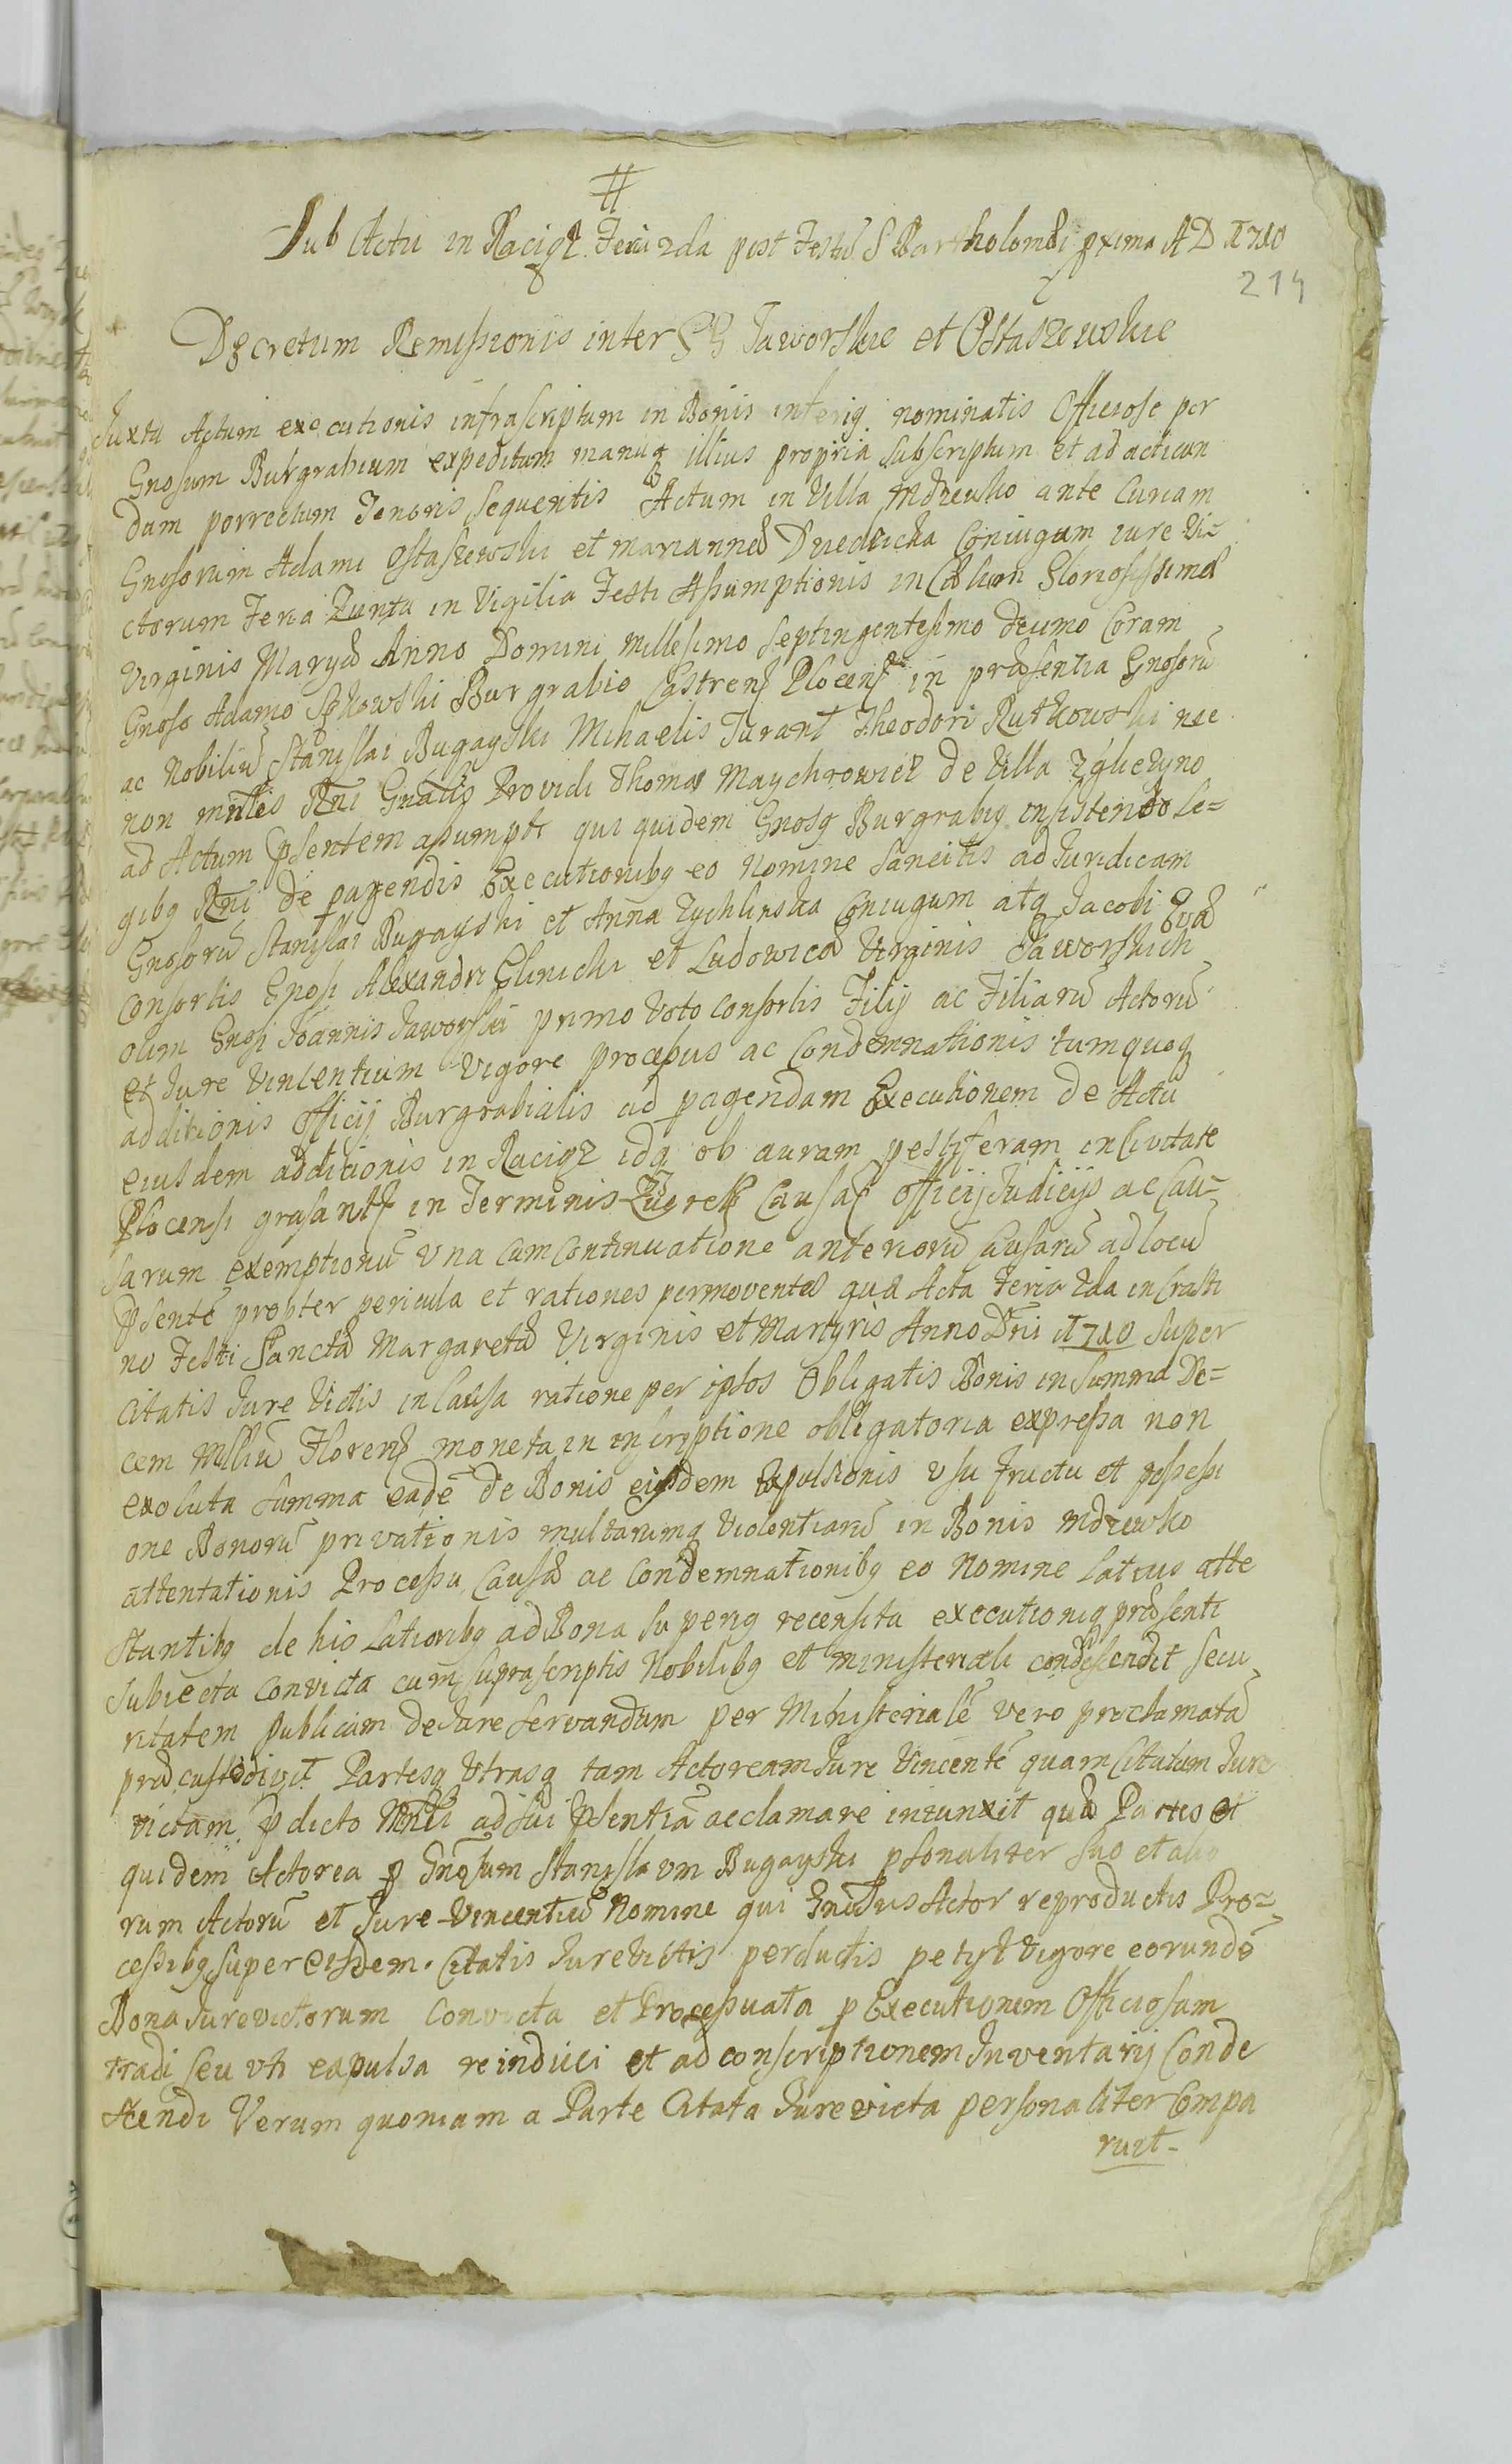 #
Sub Actu in Raciąż Feria 2da post Festū S Bartholomæi pxima A D 1710
214
Decretum Remissionis inter GG Jaworskie et Ostaszewskie
Juxta Actum executionis infrascriptum in Bonis inferiq nominatis Officiose per
Gnosum Burgrabium expeditum manuq illius propria subscriptum et ad actican
dum porrectum Tenoris sequentis Actum in Villa Mdzewko ante Curiam
Gnosorum Adami Ostaszewski et Mariannæ Dziedzicka Coniugum iure vi-
ctorum Feria Quinta in Vigilia Festi Assumptionis in Cælum Gloriosissimæ
Virginis Maryæ Anno Domini Millesimo Septingentesimo decimo Coram
Gnoso Adamo Burgrabio Castrens Plocens in præsentia Gnosorū
ac Nobiliū Stanislai Bugayski Michaelis Turant Theodori Rutkowski nec
non mnlis Rni Gnalis Providi Thomæ Maychrowicz de Villa Zgliczyno
ad Actum psentem assumpti qui quidem Gnosq Burgrabiq insistendo le-
gibq Rni de pagendis Executionibq eo Nomine sancitis ad Juridicam
Gnosorū Stanislai Bugayski et Anna Zychlinska Coniugum atq Jacobi Evæ
Consortis Gnosi Alexandri Glinicki et Ludovicæ Virginis Jaworskich
olim Gnosi Joannis Jaworski primo Voto consortis Filij ac Filiarū Actorū
et Jure Vincentium Vigore processus ac Condemnationis tum quoq
additionis officij Burgrabialis ad pagendam Executionem de Actu
eiusdem additionis in Raciąż idq ob auram pestiferam in Civitate
Plocensi grasantē in Terminis Quereł Causar officij Judicijs ac Cau-
sarum exemptionū una cum Continuatione anteriorū Causarū ad locū
psentē propter pericula et rationes permoventes quæ Acta Feria 2da in Crasti
no Festi Sanctæ Margaretæ Virginis et Martyris Anno Dni 1710 super
citatis Jure Victis in Causa ratione per ipsos Obligatis Bonis in summa De-
cem Milliū Florens moneta in inscriptione obligatoria expressa non
exoluta summa eadē de Bonis eisdem Expulsionis usu fructu et possessi
one Bonorū privationis multarumq violentiarū in Bonis Mdzewko
attentationis Processu Causæ ac Condemnationibq eo Nomine latius atte
stantibq de his Lationibq ad Bona superiq recensita executioniq præsenti
subiecta convicta cum suprascriptis Nobilibq et ministeriali condescendit secu
ritatem publicam de Jure servandum per Ministerialē vero proclamatā
præcustodivit Partesq Utrasq tam Actoream Jure Vincentē quam Citatam Jure
victam p dicto Mnli ad sui psentiā acclamare iniunxit quæ Partes et
quidem Actorea p Gnosum Stanislaum Bugayski psonaliter suo et alio
rum Actorū et Jure Vincentiū Nomine qui Gnosus Actor reproductis Pro-
cessibq super eisdem Citatis Jurevictis perductis petijt Vigore eorundē
Bona Jurevictorum Convicta et Processuata p Executionem Officiosam
tradi seu uti expulsa reinduci et ad conscriptionem Inventarij Conde
scendi Verum quoniam a Parte Citata Jurevicta personaliter Compa
ruit-